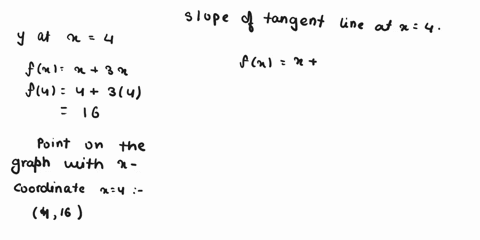 y at x = 4
f(x) = x + 3x
f(4) = 4 + 3(4)
= 16
Point on the
graph with x-
Coordinate x=4 :-
(4,16)
slope of tangent line at x=4.
f(x) = x +